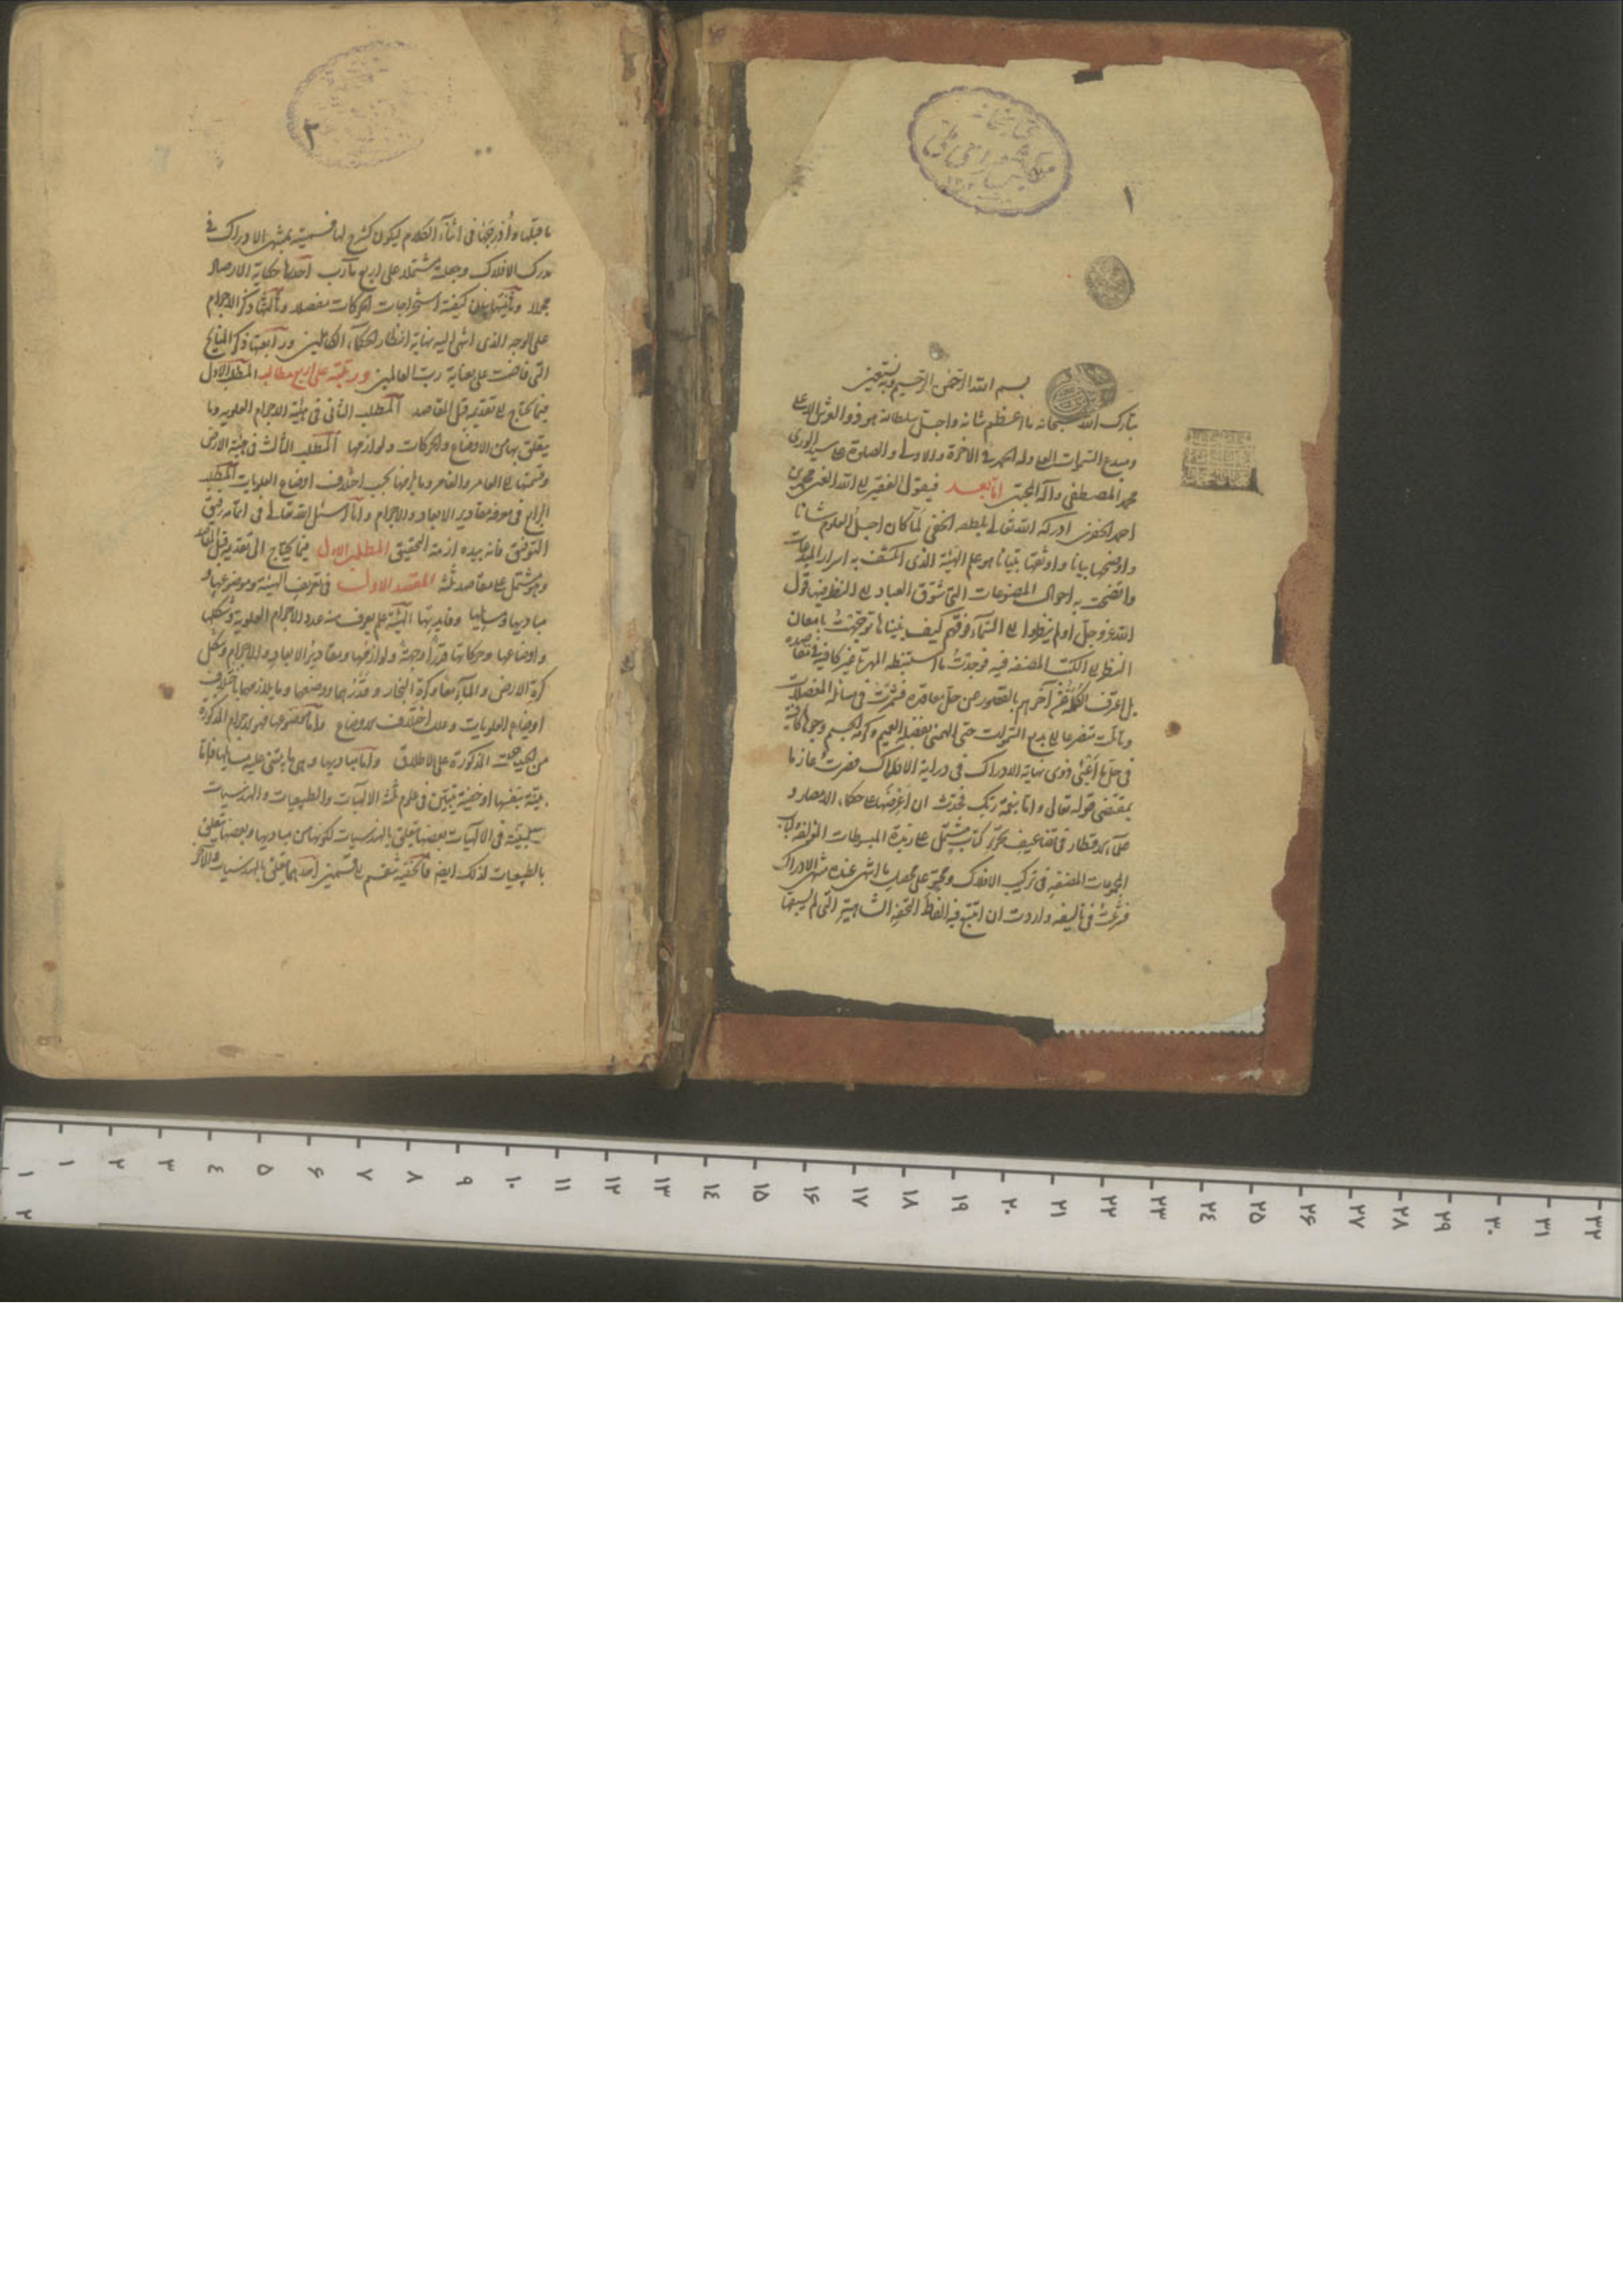 ١
بسم الله الرحمن الرحيم وبه نستعين
تبارك الله سبحانه ما اعظم شانه واجل سلطانه هو ذو العرش الاعلى
ومبدع السموات العلى وله الحمد في الآخرة والاولى والصلوة على سيد الورى
محمد المصطفى وآله المجتبى اما بعد فيقول الفقير الى الله الغنى محمد بن
احمد الخفرى ادركه الله تعالى بلطفه الخفى لما كان اجل العلوم شانا
واوضحها بيانا واوثقها تبيانا هو علم الهيئة الذى انكشف به اسرار المبدعات
واتضحت به احوال المصنوعات التى شوق العباد الى النظر فيها قول
الله عز وجل اولم ينظروا الى السماء فوقهم كيف بنيناها توجهت بامعان
النظر الى الكتب المصنفه فيه فوجدت ما استنبطه المهرة غير كافية في مقاصده
بل اعترف آخرهم بالقصور عن حل معاقده فشمرت فى مسائله المعضلات
متضرعا الى بديع السموات حتى الهمنى بفضله العميم وكرمه الجسيم وجوها كافية
فى حلها اعنى ذوى نهاية الادراك فى دراية الافلاك فصرت عازما
بمقتضى قوله تعالى واما بنعمة ربك فحدث ان اعرضها على حكماء الاعصار و
علماء الاقطار في تضاعيف تحرير كتاب مشتمل على زبدة المبسوطات المؤلفة
المصنفه فى تركيب الافلاك ومحتو على محصل ما انتهى عنده منتهى الادراك
فشرعت فى تاليفه واردت ان اتتبع فيه الفاظ التحفة الشاهية التى لم يسبقها
٢
ما قبلها وادرجها فى اثناء الكلام ليكون كشرح لها فسميته بمنتهى الادراك في
مدرك الافلاك وجعلته مشتملا على اربع مآرب احدها حكاية الارصاد
مجملا وثانيتها بيان كيفية استخراجات الحركات مفصلا وثالثها ذكر الاجرام
على الوجه الذى انتهى اليه نهاية انظار الحكماء الكاملين ورابعتها ذكر النتايج
التى فاضت على بعناية رب العالمين ورتبته على اربع مطالب المطلب الاول
فيما يحتاج الى تقديمه قبل المقاصد المطلب الثانى فى هيئة الاجرام العلوية وما
يتعلق بها من الاوضاع والحركات ولوازمها المطلب الثالث فى هيئة الارض
وقسمتها الى العامر والغامر وما يلزمها بحسب اختلاف اوضاع العلويات المطلب
الرابع فى معرفة مقادير الابعاد والاجرام وانا اسئل الله تعالى فى اتمامه رفيق
التوفيق فانه بيده ازمة التحقيق المطلب الاول فيما يحتاج الى تقديمه قبل المقاصد
وهو مشتمل على مقاصد ثلثة المقصد الاول فى تعريف الهيئة وموضوعها و
مباديها ومسايلها وفايدتها الهيئة علم يعرف منه عدد الاجرام العلوية وشكلها
واوضاعها وحركاتها قدرا وجهة ولوازمها ومقادير الابعاد والاجرام وشكل
كرة الارض والماء معا وكرة البخار وقدرهما ووضعهما وما يلازمهما باختلاف
اوضاع العلويات وعلل اختلاف الاوضاع واما موضوعها فهو الاجرام المذكورة
من الحيثيات المذكورة على الاطلاق واما مباديها وهى ما يبتنى عليه مسايلها فاما
بينة بنفسها او خفية تتبين فى علوم ثلثة الالهيات والطبيعيات والهندسيات
المبينة فى الالهيات بعضها تتعلق بالهندسيات لكونها من مباديها وبعضها يتعلق
بالطبيعيات لذلك ايضا فالخفية تنقسم الى قسمين احدهما يتعلق بالهندسيات والآخر
١ ٢ ٣ ٤ ٥ ۶ ٧ ٨ ٩ ١٠ ١١ ١٢ ١٣ ١٤ ١٥ ١۶ ١٧ ١٨ ١٩ ٢٠ ٢١ ٢٢ ٢٣ ٢٤ ٢٥ ٢۶ ٢٧ ٢٨ ٢٩ ٣٠ ٣١ ٣٢
١
٢